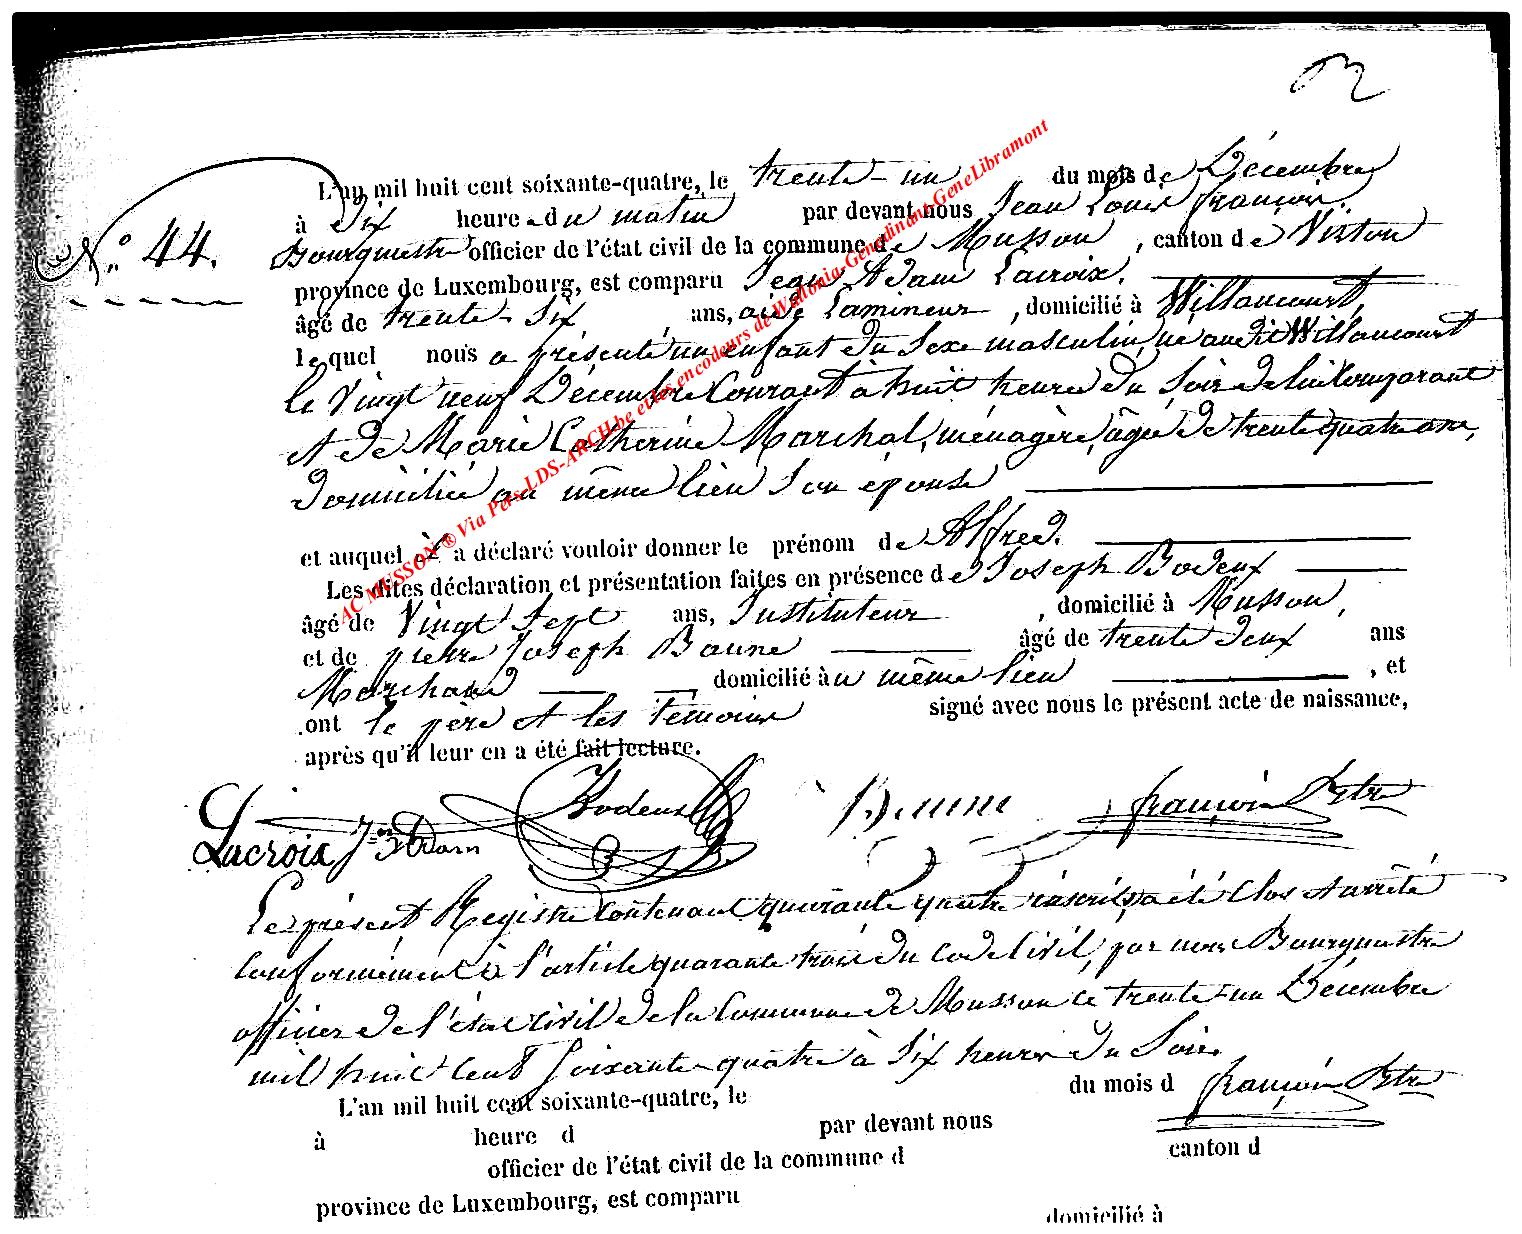 L'an mil huit cent soixante-quatre, le trente-un du mois de Décembre
à six heure du matin par devant nous Jean Louis françois.
N.° 44. Bourgmestre officier de l'état civil de la commune de Musson, canton de Virton
province de Luxembourg, est comparu Jean Adam Lacroix.
âgé de trente-six ans, aide Lamineur, domicilié à Willancourt,
lequel nous a présenté un enfant du sexe masculin, né audit Willancourt
le vingt neuf Décembre Courant à huit heure du soir de lui comparant
et de Marie Catherine Marchal, ménagère, âgée de trente quatre ans,
domiciliée au même lieu son épouse
et auquel il a déclaré vouloir donner le prénom de Alfred.
Les dites déclaration et présentation faites en présence de Joseph Bodeux
âgé de Vingt sept ans, Instituteur, domicilié à Musson,
et de pierre Joseph Baune âgé de trente deux ans
Marchand domicilié au même lieu, et
ont le père et les témoins signé avec nous le présent acte de naissance,
après qu'il leur en a été fait lecture.
Lacroix Jean Adam Bodeux Baune françois Bstre
Le présent Registre Contenant quarante quatre inscrits, a été Clos et arrêté
Conformément à l'article quarante trois du code Civil, par nous Bourgmestre
officier de l'état Civil de la Commune de Musson ce trente-un Décembre
mil huit cent soixante-quatre à six heures du Soir.
françois Bstre
L'an mil huit cent soixante-quatre, le du mois d
à heure d par devant nous
officier de l'état civil de la commune d canton d
province de Luxembourg, est comparu
domicilié à
AC MUSSON ® Via Pers-LDS-ARCH.be et les encodeurs de Wallonia-Genedinant-GeneLibramont